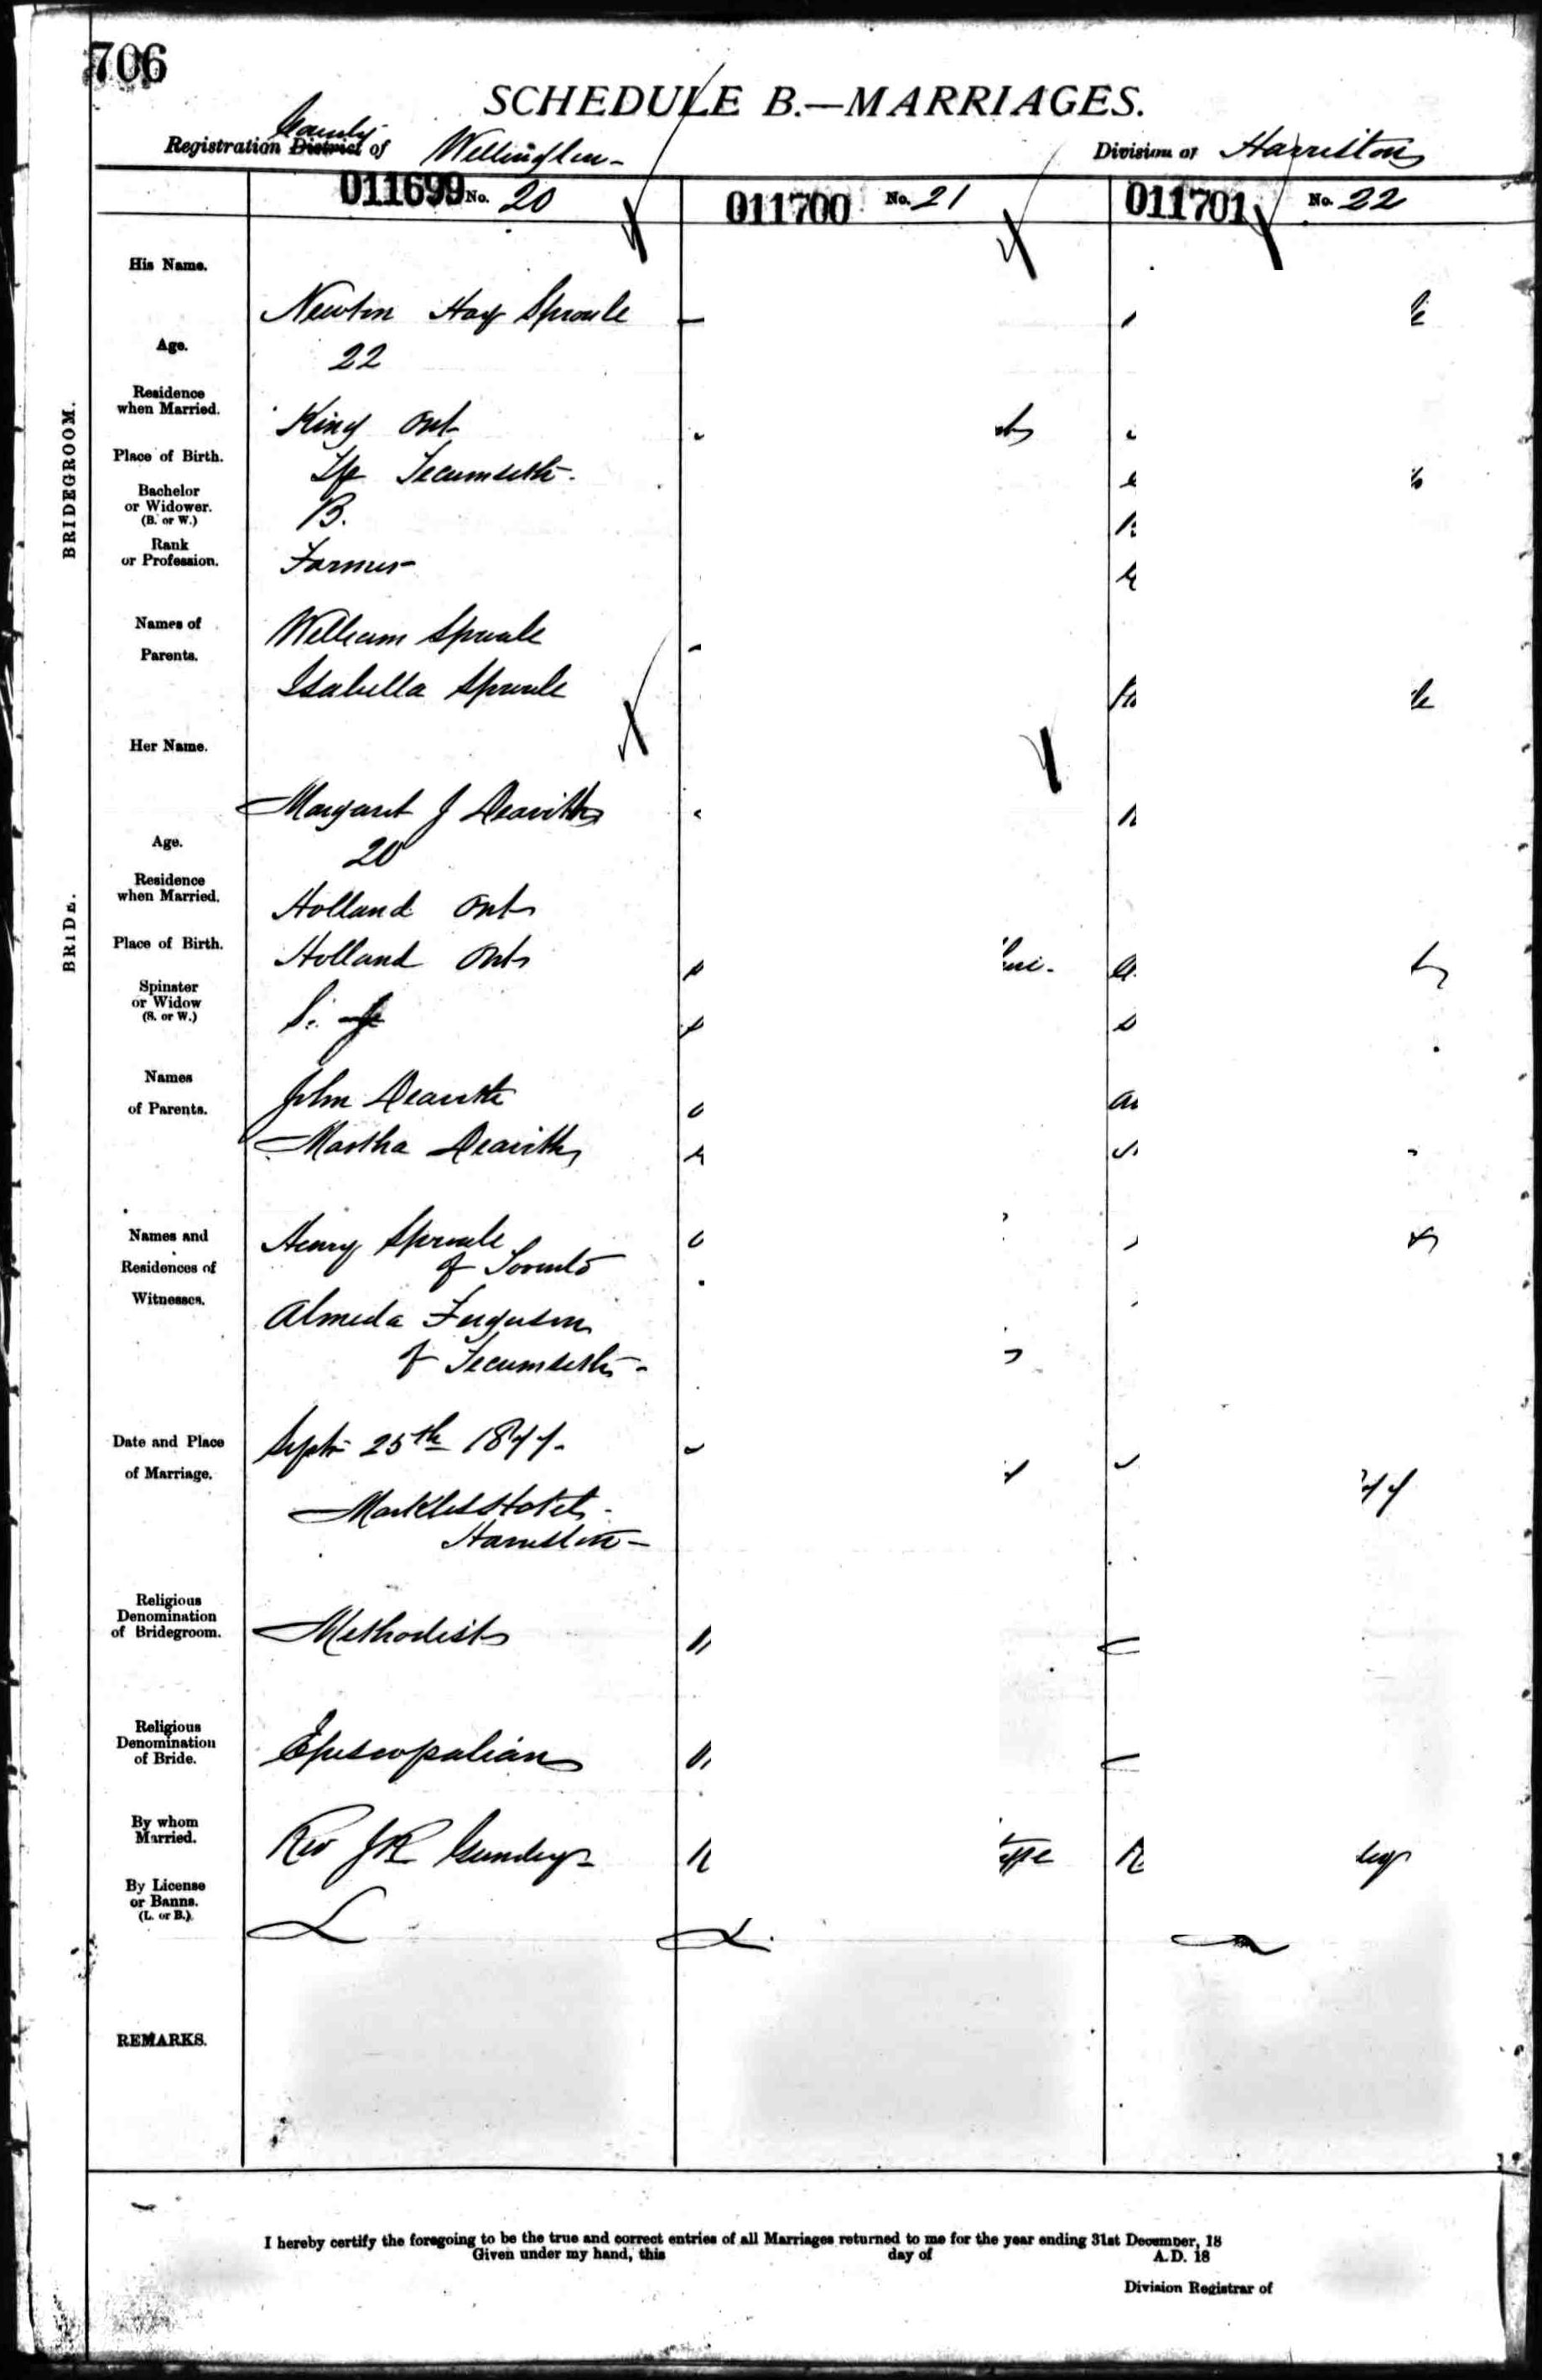 706
SCHEDULE B.—MARRIAGES.
Registration District of County Wellington Division of Harriston
011699 No. 20 011700 No. 21 011701 No. 22
BRIDEGROOM.
His Name.
Newton Hay Sproule
Age.
22
Residence
when Married.
King Ont
Place of Birth.
Tp Tecumseth
Bachelor
or Widower.
(B. or W.)
B.
Rank
or Profession.
Farmer
Names of
Parents.
William Sproule
Isabella Sproule
BRIDE.
Her Name.
Margaret J
Age.
20
Residence
when Married.
Holland Ont
Place of Birth.
Holland Ont
Spinster
or Widow
(S. or W.)
S.
Names
of Parents.
John
Martha
Names and
Residences of
Witnesses.
Henry Sproule
of Toronto
Almeda Ferguson
of Tecumseth
Date and Place
of Marriage.
Sept 25th
Hotel
Harriston
Religious
Denomination
of Bridegroom.
Methodist
Religious
Denomination
of Bride.
Episcopalian
By whom
Married.
Rev J R Gundy
By License
or Banns.
(L. or B.)
L L.
REMARKS.
I hereby certify the foregoing to be the true and correct entries of all Marriages returned to me for the year ending 31st December, 18
Given under my hand, this day of A.D. 18
Division Registrar of